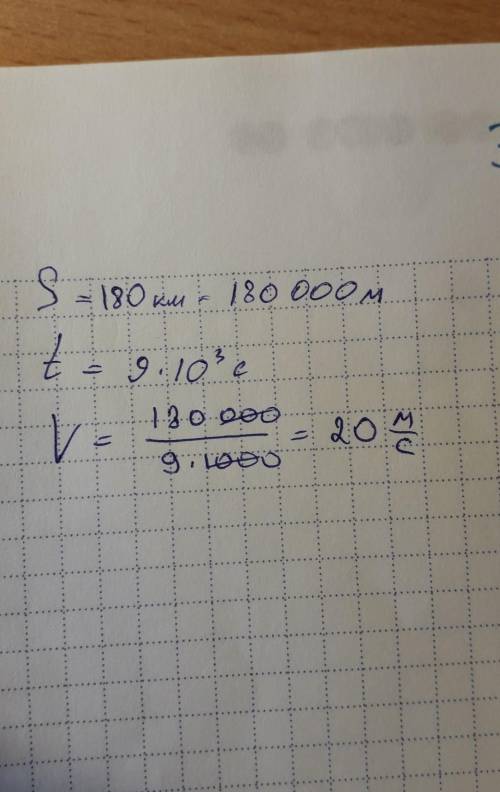 S = 180 км = 180 000 м
t = 9 · 10³ с
V = 180 000 / 9 · 1000 = 20 м/с